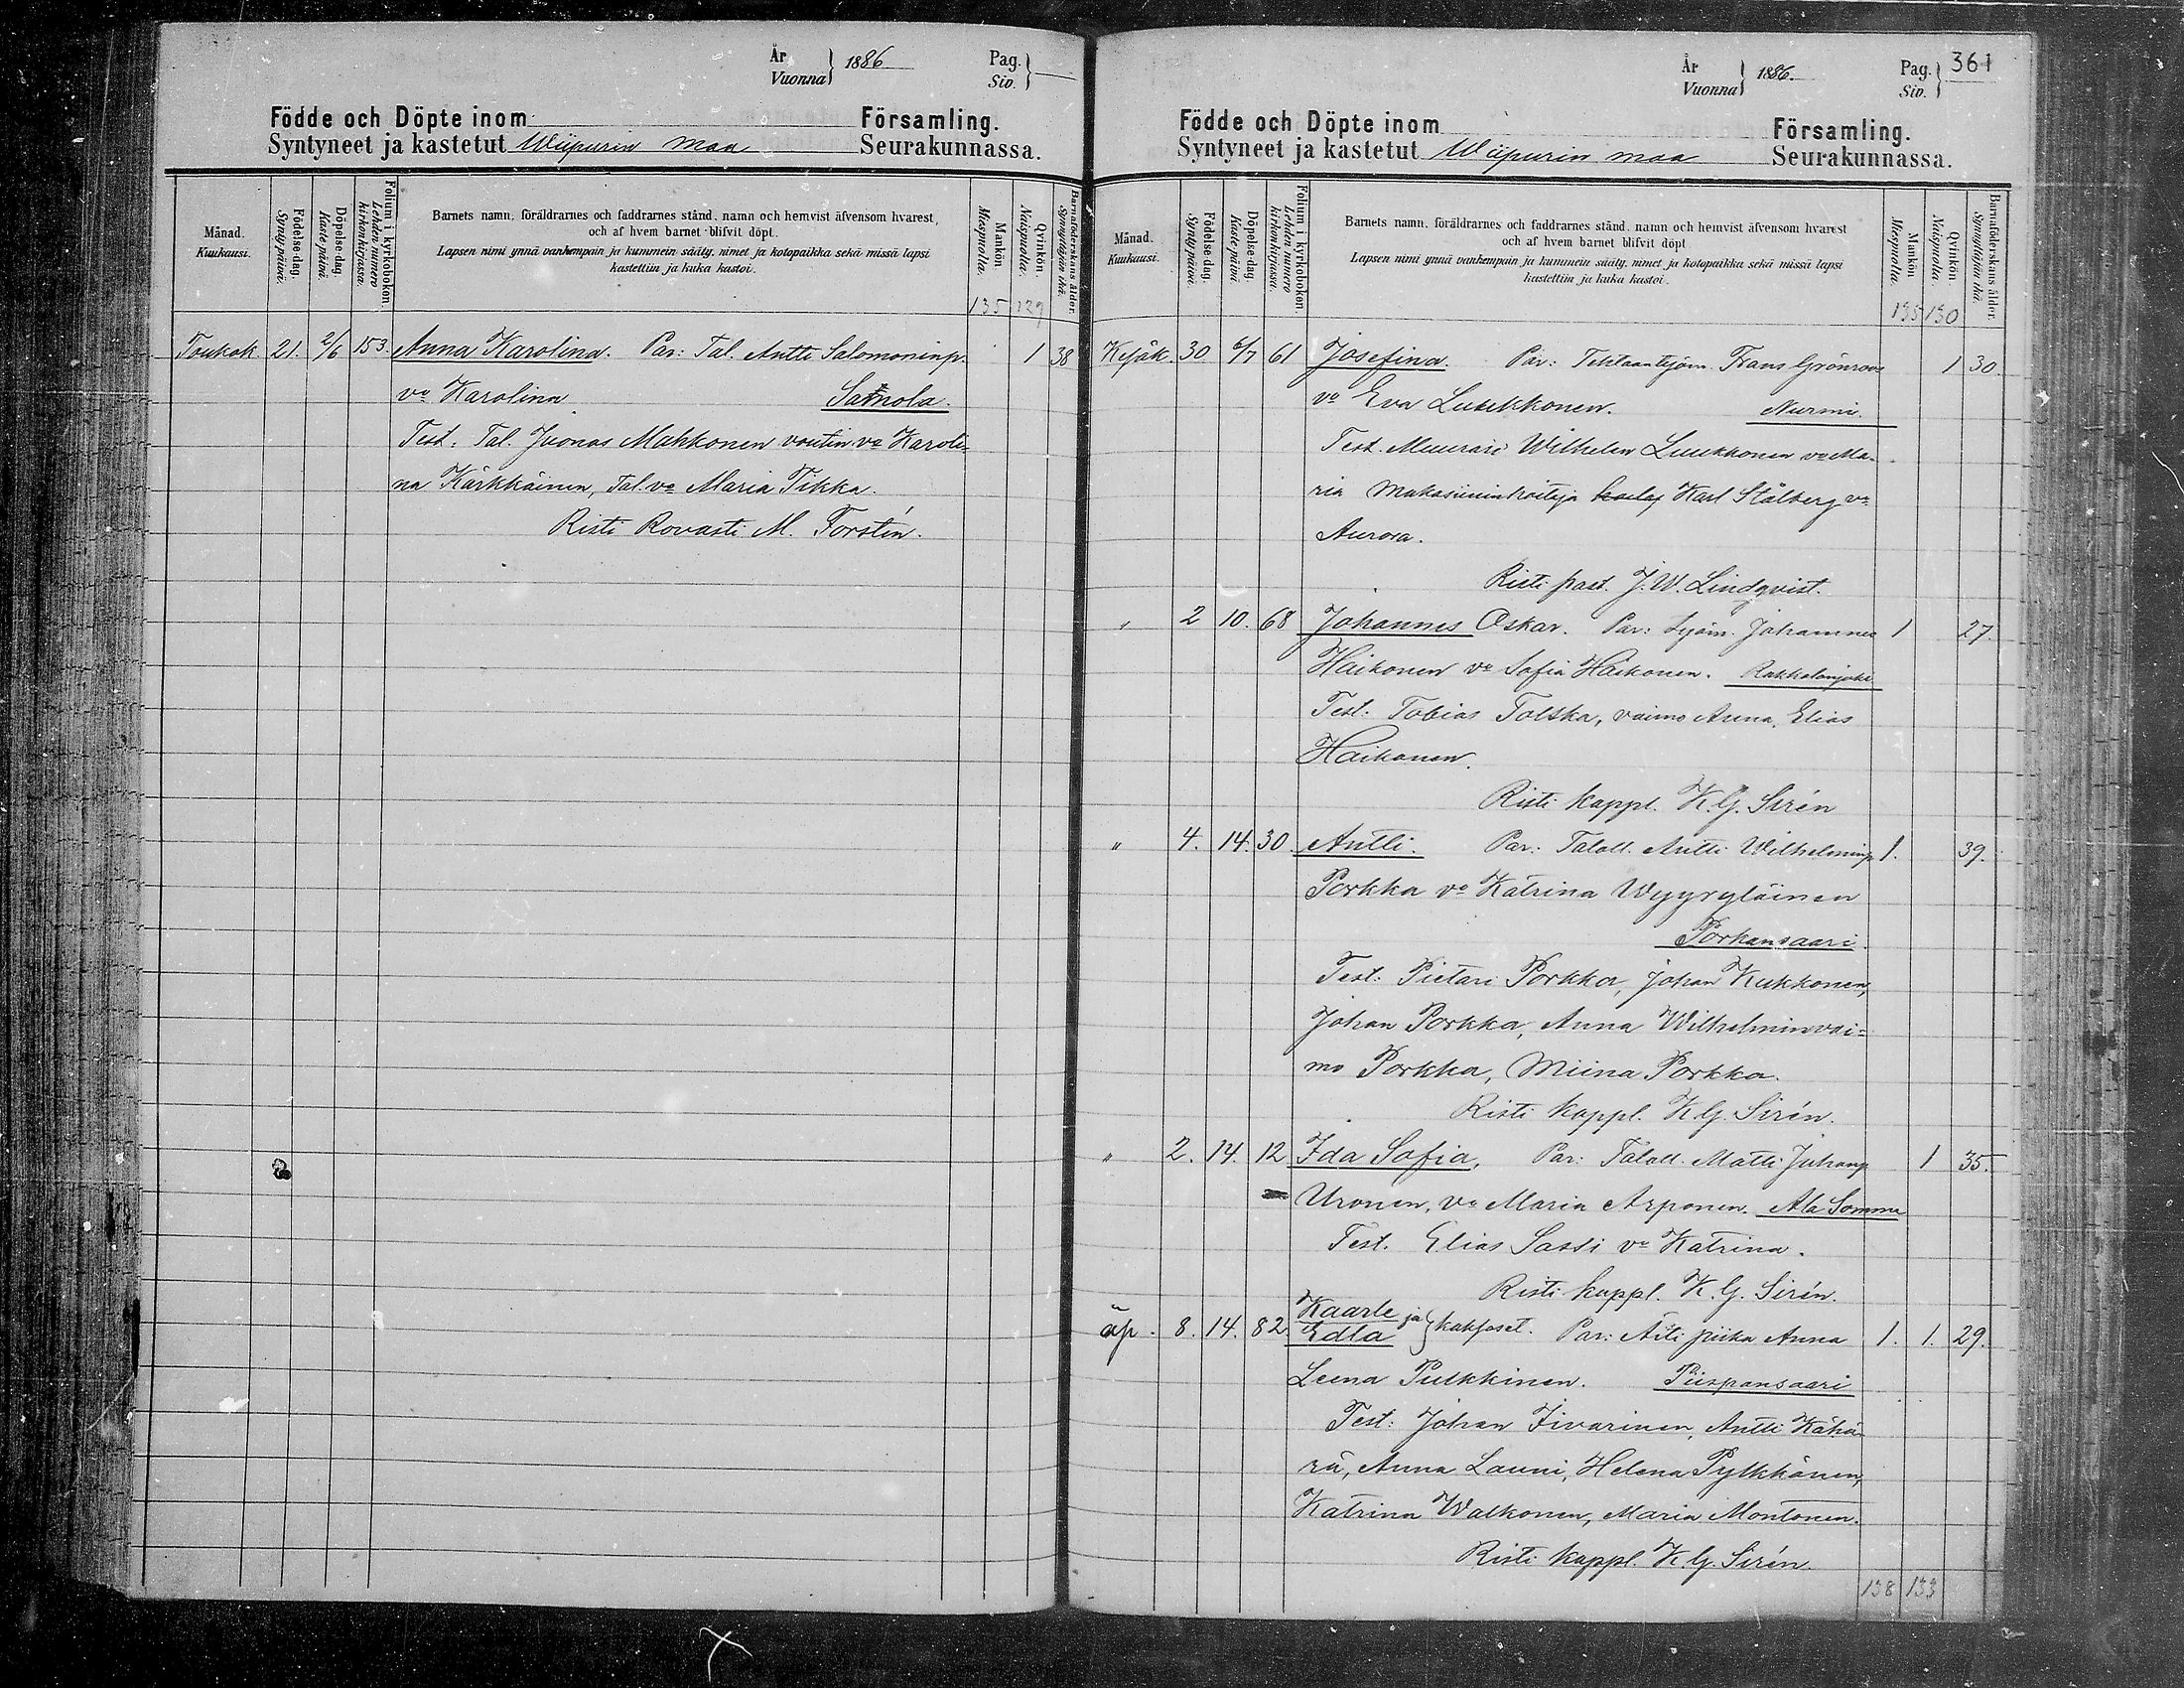 År
Vuonna } 1886
Pag.
Siv. } —
Födde och Döpte inom Församling.
Syntyneet ja kastetut Wiipurin maa Seurakunnassa.
Månad. Kuukausi.
Födelse-dag. Syntypäivä.
Döpelse-dag. Kastepäivä.
Folium i kyrkoboken. Lehden numero kirkonkirjassa.
Barnets namn, föräldrarnes och faddrarnes stånd, namn och hemvist äfvensom hvarest,
och af hvem barnet blifvit döpt.
Lapsen nimi ynnä vanhempain ja kummein sääty, nimet ja kotopaikka sekä missä lapsi
kastettiin ja kuka kastoi.
Mankön Miespuolia.
Qvinkön. Naispuolia.
Barnaföderskans ålder. Synnyttäjän ikä.
135 129
Toukok 21. 2/6 153. Anna Karolina. Par: Tal. Antti Salomoninp. 1 38
vo Karolina Samola.
Test: Tal. Juonas Mahkonen voutin vo Karoli-
na Kärkkäinen, Tal. vo Maria Tikka.
Risti Rovasti M. Forstén.
År
Vuonna } 1886.
Pag.
Siv. } 361
Födde och Döpte inom Församling.
Syntyneet ja kastetut Wiipurin maa Seurakunnassa.
Månad. Kuukausi.
Födelse-dag. Syntypäivä.
Döpelse-dag. Kastepäivä.
Folium i kyrkoboken. Lehden numero kirkonkirjassa.
Barnets namn, föräldrarnes och faddrarnes stånd, namn och hemvist äfvensom hvarest
och af hvem barnet blifvit döpt
Lapsen nimi ynnä vanhempain ja kummein sääty, nimet ja kotopaikka sekä missä lapsi
kastettiin ja kuka kastoi.
Mankön Miespuolia.
Qvinkön. Naispuolia.
Barnaföderskans ålder. Synnyttäjän ikä.
135 130
Kesäk. 30 6/7 61 Josefina. Par: Tehtaantyöm. Frans Grönroos 1 30.
vo Eva Luukkonen. Nurmi.
Test. Muurari Wilhelm Luukkonen vo Ma-
ria Makasiininhoitaja Karl Stålberg vo
Aurora.
Risti past. J. W. Lindqvist.
" 2 10. 68 Johannes Oskar. Par: Työm. Johannes 1 27.
Haikonen vo Sofia Haikonen. Rakkolanjoki
Test: Tobias Tolska, vaimo Anna, Elias
Haikonen.
Risti kappl. K. G. Sirén
" 4. 14. 30. Antti. Par: Taloll. Antti Wilhelminp 1. 39.
Porkka vo Katrina Wyyryläinen
Porkansaari.
Test: Pietari Porkka, Johan Kukkonen,
Johan Porkka, Anna Wilhelmin vai-
mo Porkka, Miina Porkka.
Risti kappl. K. G. Sirén.
" 2. 14. 12 Ida Sofia, Par: Taloll. Matti Juhanp 1 35.
Uronen, vo Maria Arponen. Ala Somme
Test. Elias Sassi vo Katrina.
Risti kappl. K. G. Sirén.
äp. 8. 14. 82 Kaarle ja Edla } kaksoset. Par: Äiti piika Anna 1. 1. 29.
Leena Pulkkinen. Piispansaari
Test: Johan Iivarinen, Antti Kähä-
rä, Anna Launi, Helena Pylkkänen,
Katrina Walkonen, Maria Montonen.
Risti kappl. K. G. Sirén.
138 133